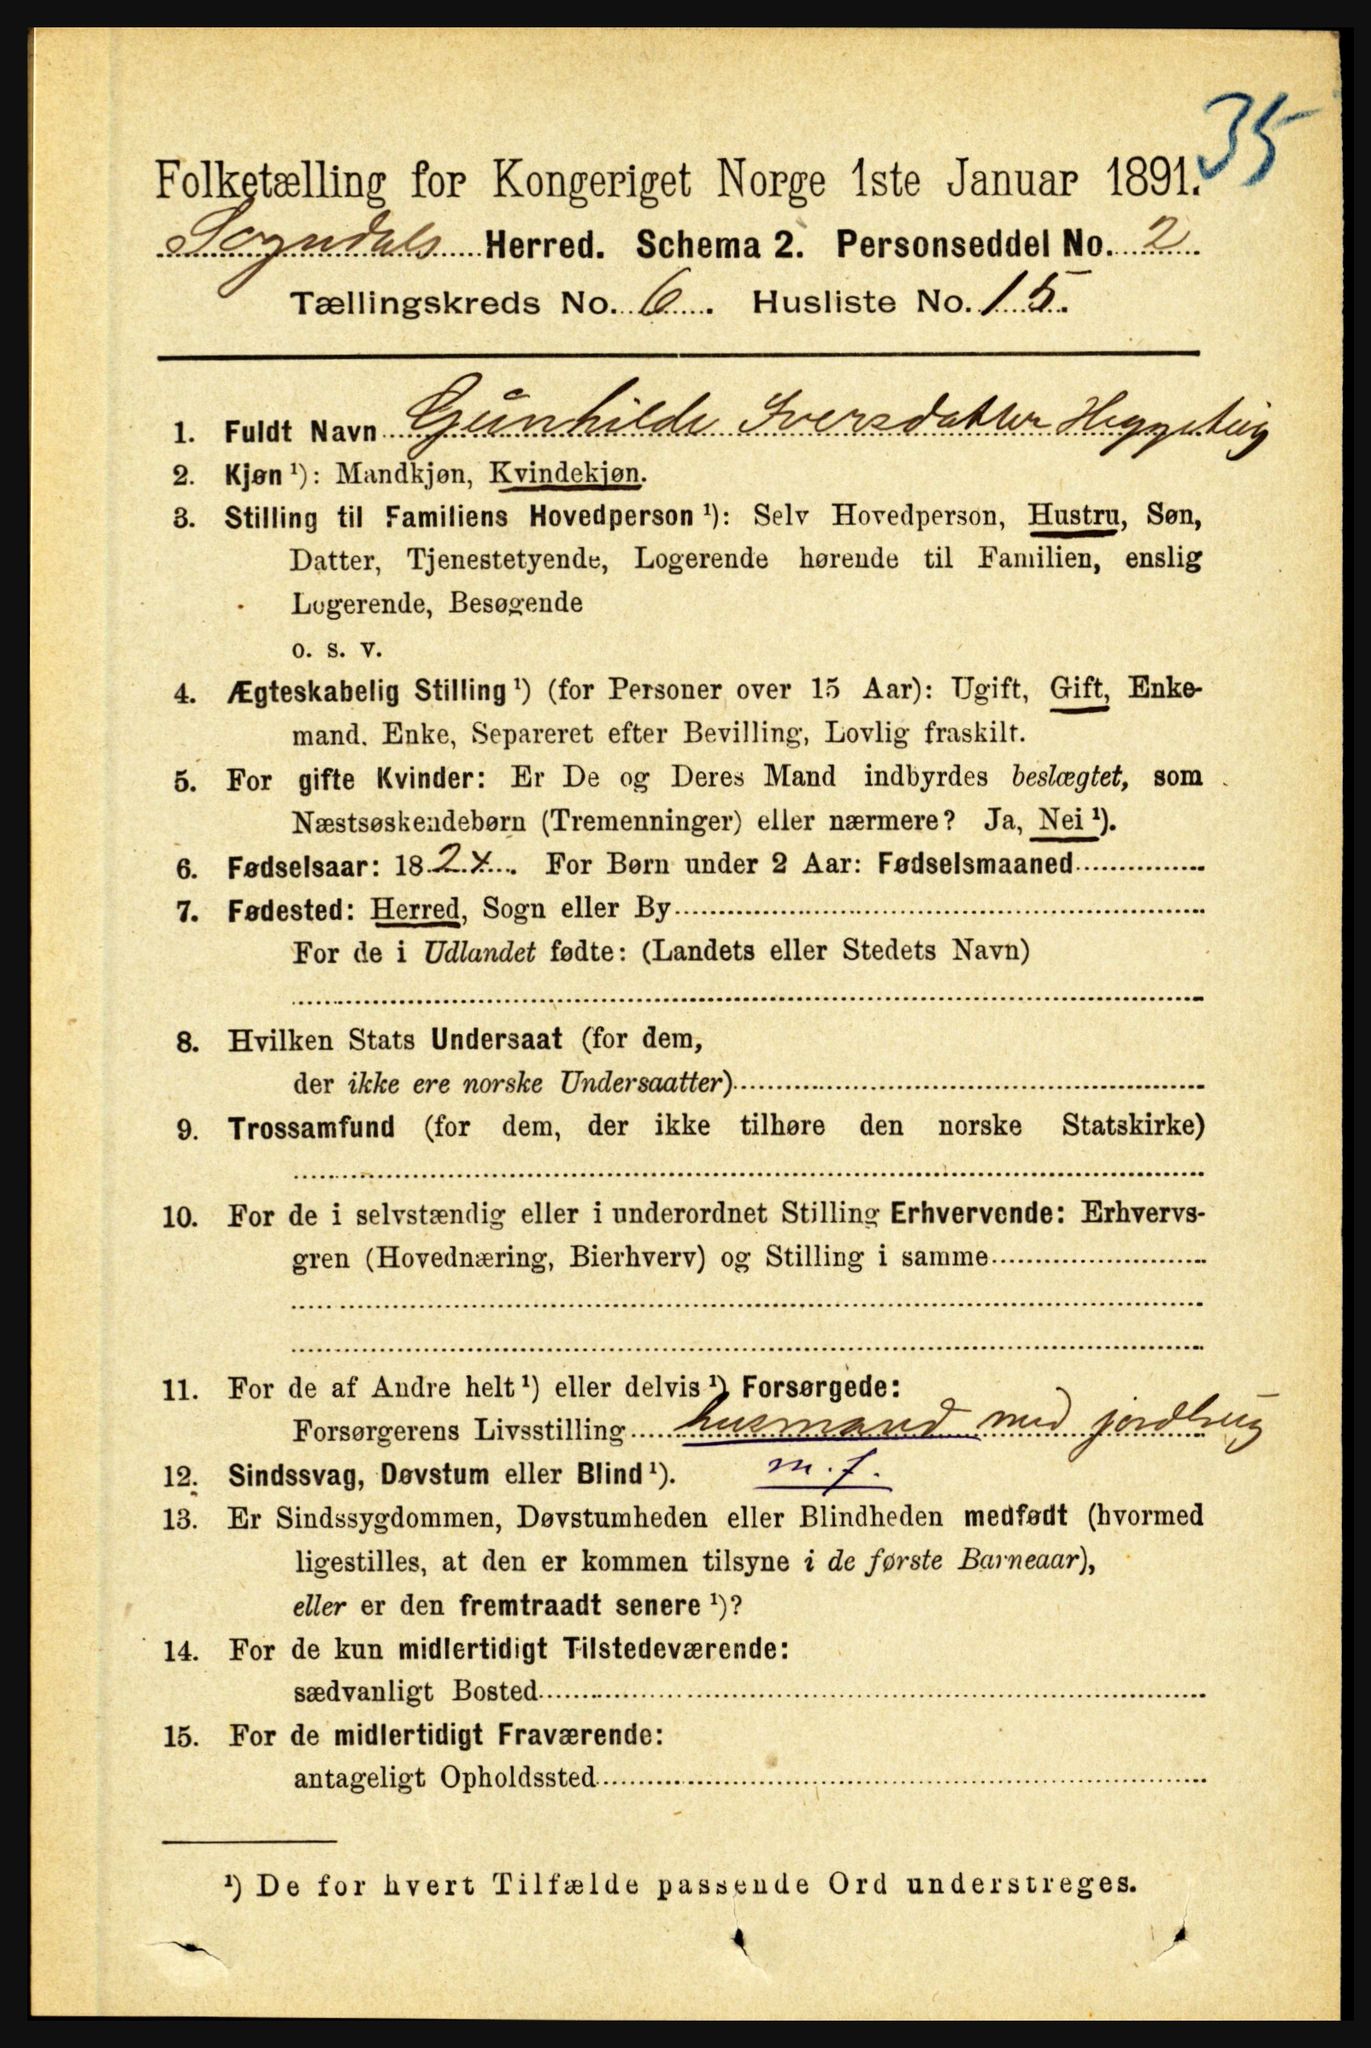 35
Folketælling for Kongeriget Norge 1ste Januar 1891.
Sogndals Herred. Schema 2. Personseddel No. 2
Tællingskreds No. 6. Husliste No. 15.
1. Fuldt Navn Gunhilde Iversdatter
2. Kjøn ¹): Mandkjøn, Kvindekjøn.
3. Stilling til Familiens Hovedperson ¹): Selv Hovedperson, Hustru, Søn,
Datter, Tjenestetyende, Logerende hørende til Familien, enslig
Logerende, Besøgende
o. s. v.
4. Ægteskabelig Stilling ¹) (for Personer over 15 Aar): Ugift, Gift, Enke-
mand, Enke, Separeret efter Bevilling, Lovlig fraskilt.
5. For gifte Kvinder: Er De og Deres Mand indbyrdes beslægtet, som
Næstsøskendebørn (Tremenninger) eller nærmere? Ja, Nei ¹).
6. Fødselsaar: 1824. For Børn under 2 Aar: Fødselsmaaned
7. Fødested: Herred, Sogn eller By
For de i Udlandet fødte: (Landets eller Stedets Navn)
8. Hvilken Stats Undersaat (for dem,
der ikke ere norske Undersaatter)
9. Trossamfund (for dem, der ikke tilhøre den norske Statskirke)
10. For de i selvstændig eller i underordnet Stilling Erhvervende: Erhvervs-
gren (Hovednæring, Bierhverv) og Stilling i samme
11. For de af Andre helt ¹) eller delvis ¹) Forsørgede:
Forsørgerens Livsstilling husmand med jordbrug
12. Sindssvag, Døvstum eller Blind ¹). m. f.
13. Er Sindssygdommen, Døvstumheden eller Blindheden medfødt (hvormed
ligestilles, at den er kommen tilsyne i de første Barneaar),
eller er den fremtraadt senere ¹)?
14. For de kun midlertidigt Tilstedeværende:
sædvanligt Bosted
15. For de midlertidigt Fraværende:
antageligt Opholdssted
¹) De for hvert Tilfælde passende Ord understreges.